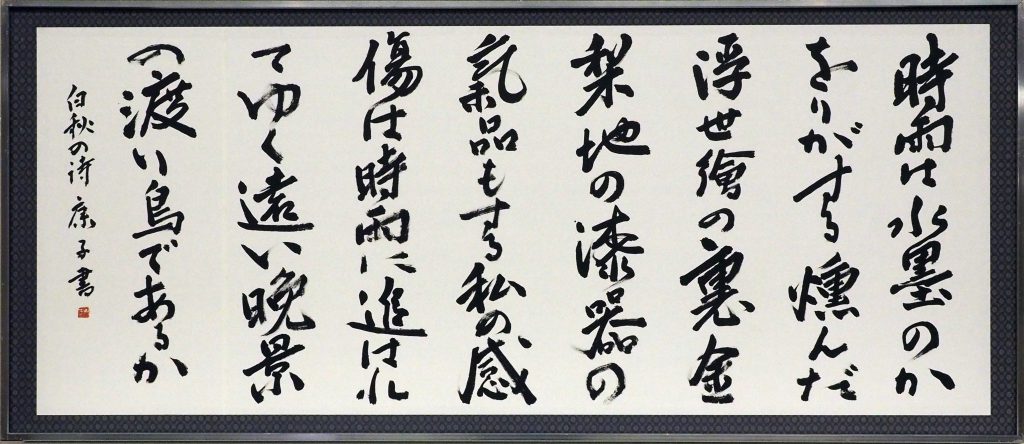 時雨は水墨のか
をりがする燻んだ
浮世繪の裏金
梨地の漆器の
氣品もする私の感
傷は時雨に追はれ
てゆく遠い晩景
の渡り鳥であるか
白秋の詩 康子書